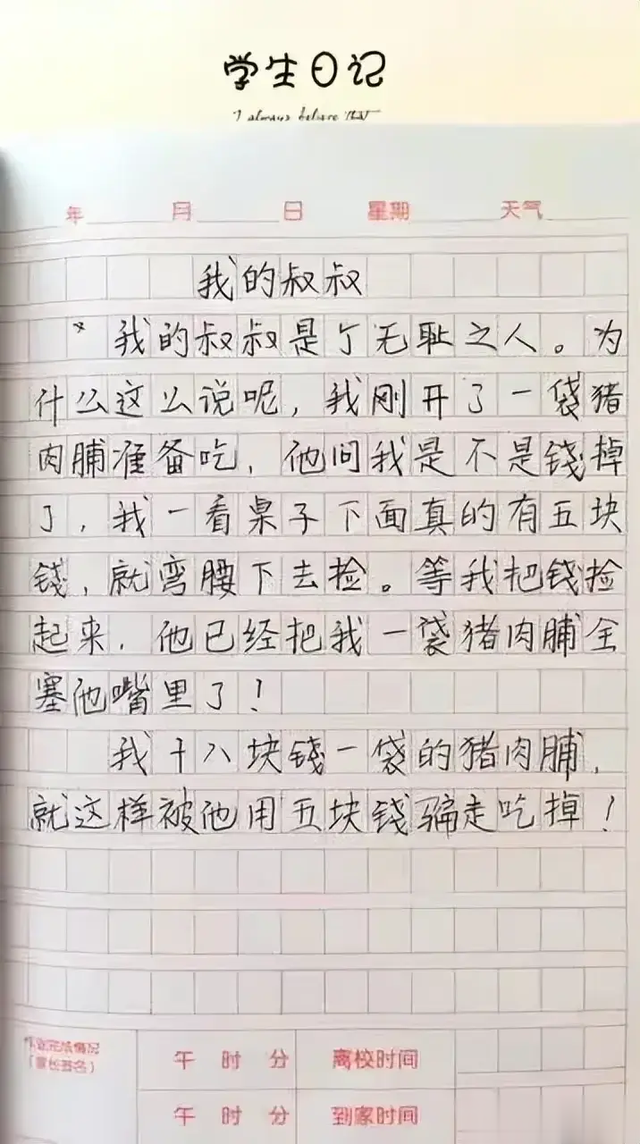 学生日记
I always believe that
年 月 日 星期 天气
我的叔叔
我的叔叔是个无耻之人。为
什么这么说呢，我刚开了一袋猪
肉脯准备吃，他问我是不是钱掉
了，我一看桌子下面真的有五块
钱，就弯腰下去捡。等我把钱捡
起来，他已经把我一袋猪肉脯全
塞他嘴里了！
我十八块钱一袋的猪肉脯，
就这样被他用五块钱骗走吃掉！
作业完成情况 午 时 分 离校时间
（家长签名）
午 时 分 到家时间